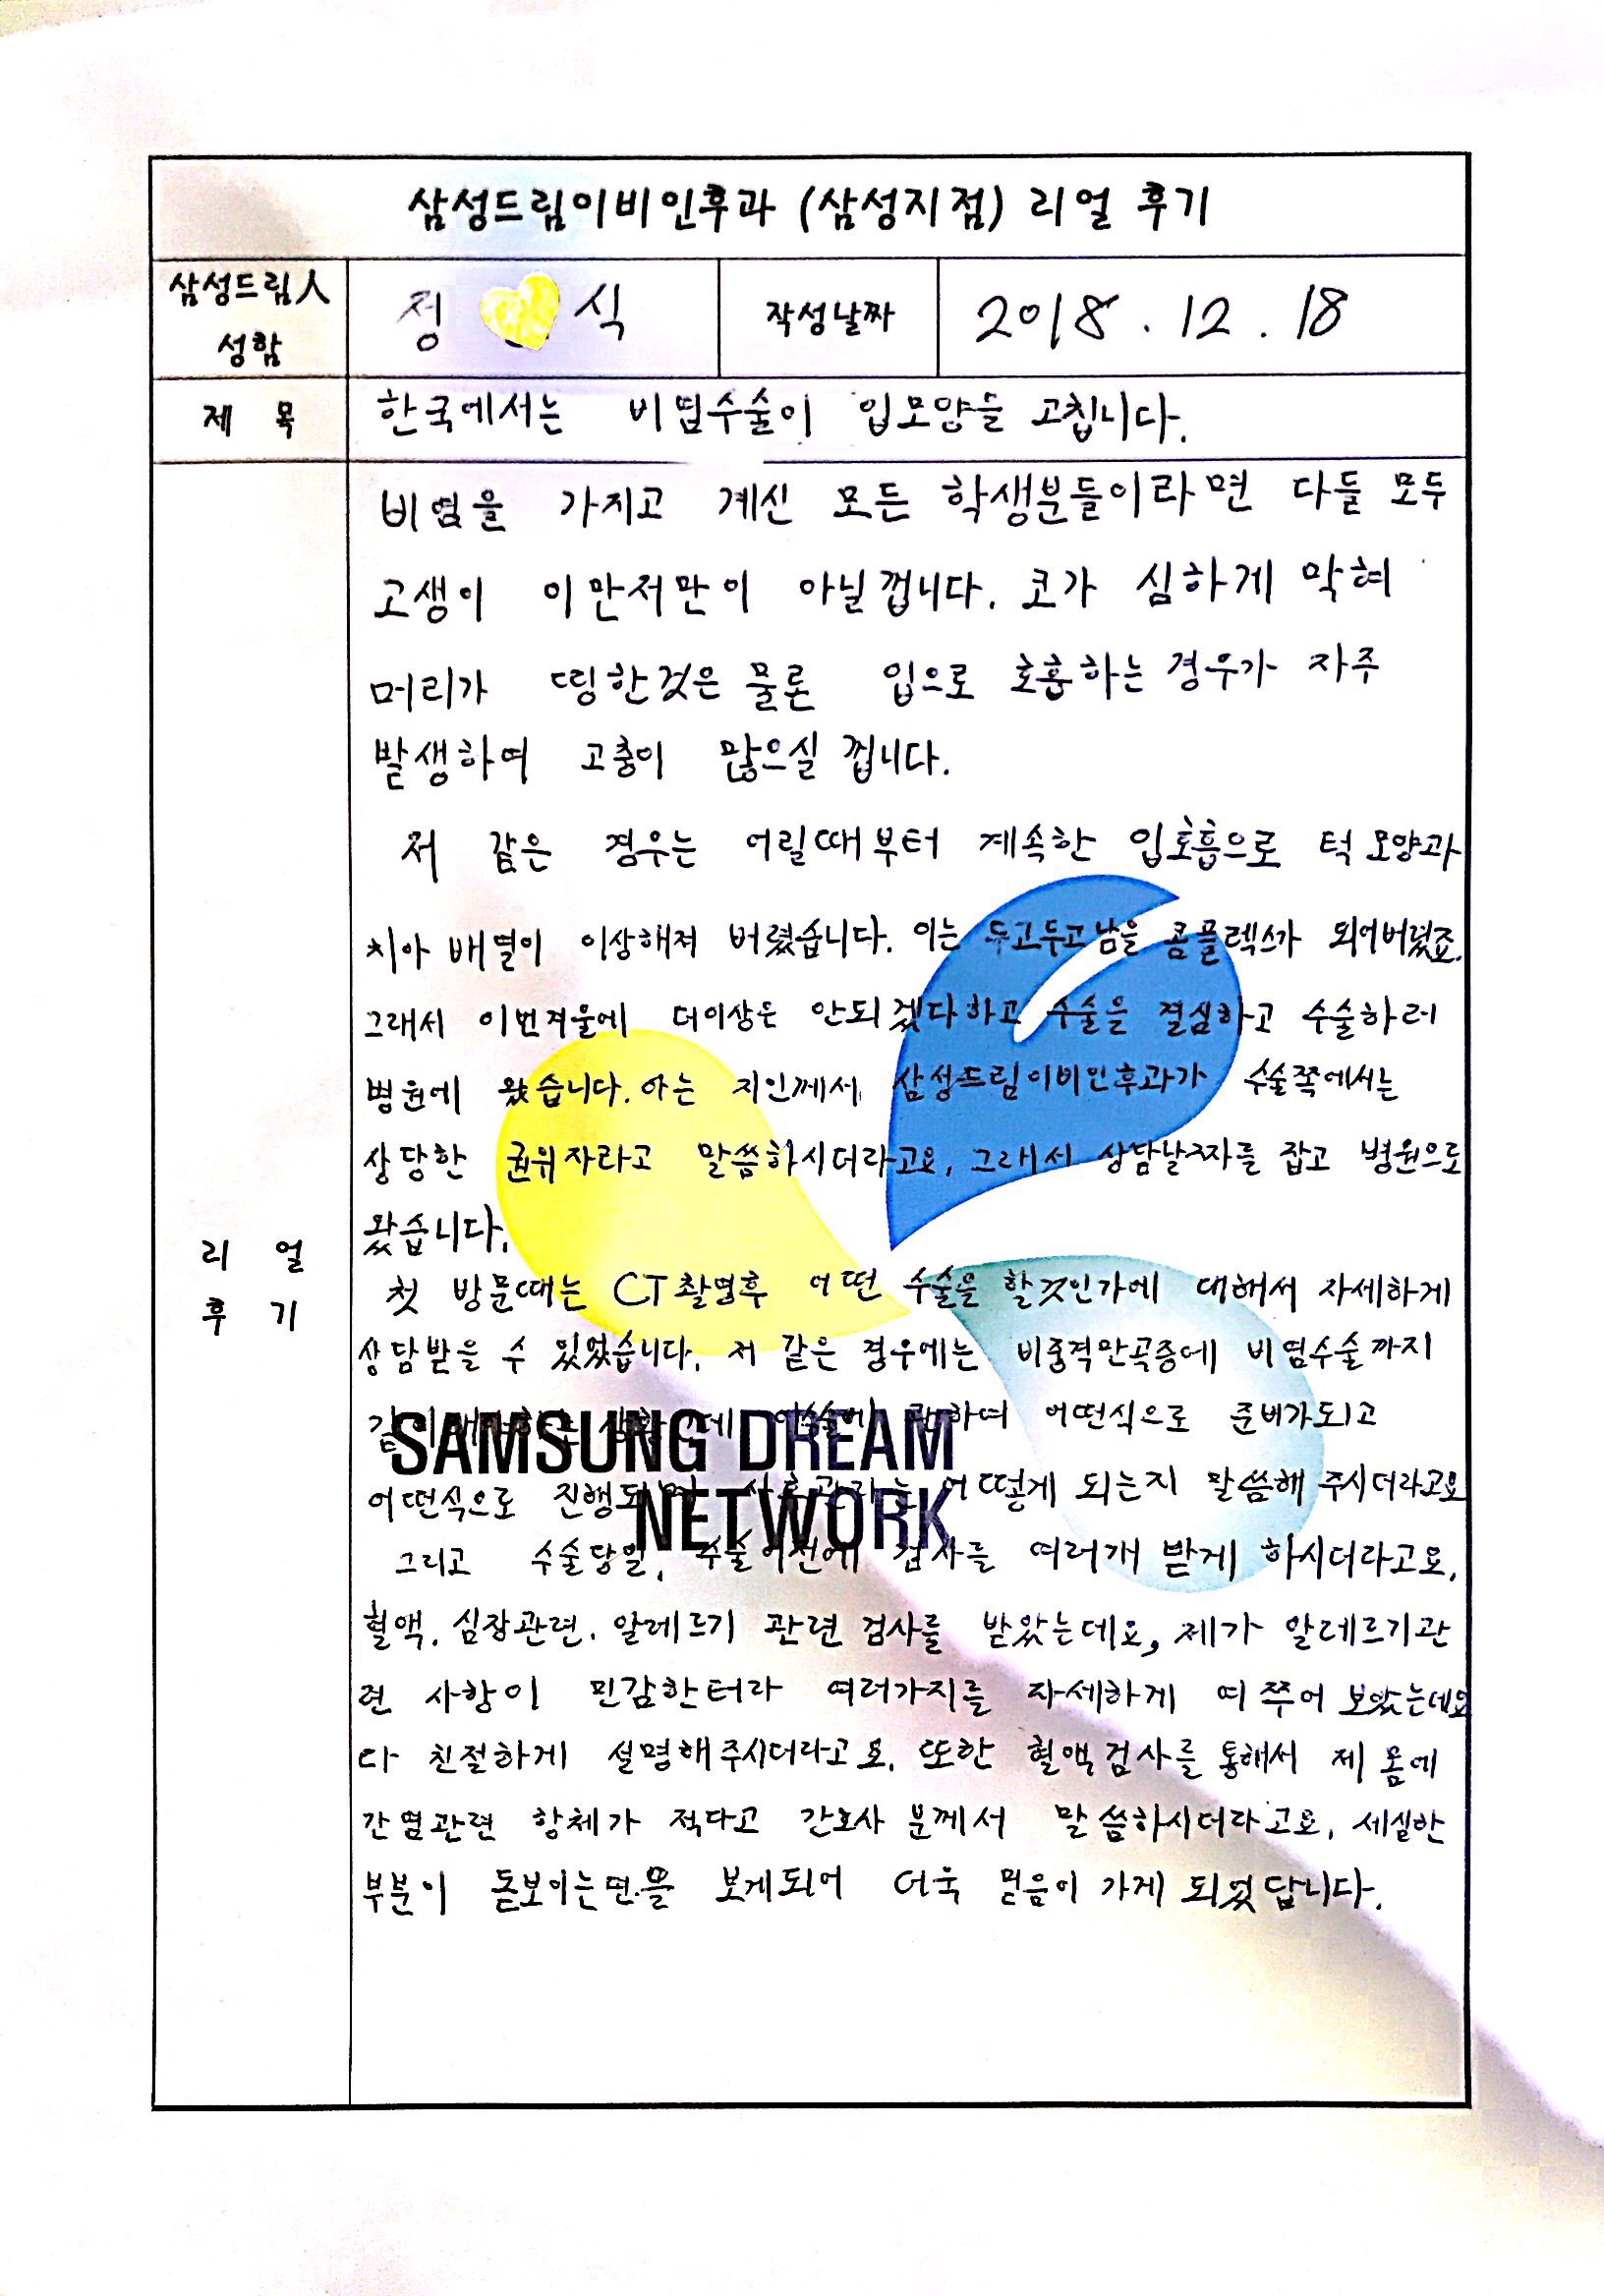 삼성드림이비인후과 (삼성지점) 리얼 후기
삼성드림人
성함
정 식
작성날짜
2018. 12. 18
제 목
한국에서는 비염수술이 입모양을 고칩니다.
리 얼
후 기
비염을 가지고 계신 모든 학생분들이라면 다들 모두
고생이 이만저만이 아닐껍니다. 코가 심하게 막혀
머리가 띵한것은 물론 입으로 호흡하는 경우가 자주
발생하여 고충이 많으실 껍니다.
저 같은 경우는 어릴때부터 계속한 입호흡으로 턱 모양과
치아 배열이 이상해져 버렸습니다. 이는 두고두고 남을 콤플렉스가 되어버렸죠.
그래서 이번겨울에 더이상은 안되겠다하고 수술을 결심하고 수술하러
병원에 왔습니다. 아는 지인께서 삼성드림이비인후과가 수술쪽에서는
상당한 권위자라고 말씀하시더라고요. 그래서 상담날짜를 잡고 병원으로
왔습니다.
첫 방문때는 CT촬영후 어떤 수술을 할것인가에 대해서 자세하게
상담받을 수 있었습니다. 저 같은 경우에는 비중격만곡증에 비염수술까지
같이 하여 어떤식으로 준비가되고
어떤식으로 진행되 사후관리는 어떻게 되는지 말씀해 주시더라고요
그리고 수술당일, 수술이전에 검사를 여러개 받게 하시더라고요.
혈액. 심장관련. 알레르기 관련 검사를 받았는데요, 제가 알레르기관
련 사항이 민감한터라 여러가지를 자세하게 여쭈어 보았는데요
다 친절하게 설명해주시더라고요. 또한 혈액검사를 통해서 제 몸에
간염관련 항체가 적다고 간호사 분께서 말씀하시더라고요. 세심한
부분이 돋보이는면을 보게되어 더욱 믿음이 가게 되었답니다.
SAMSUNG DREAM
NETWORK